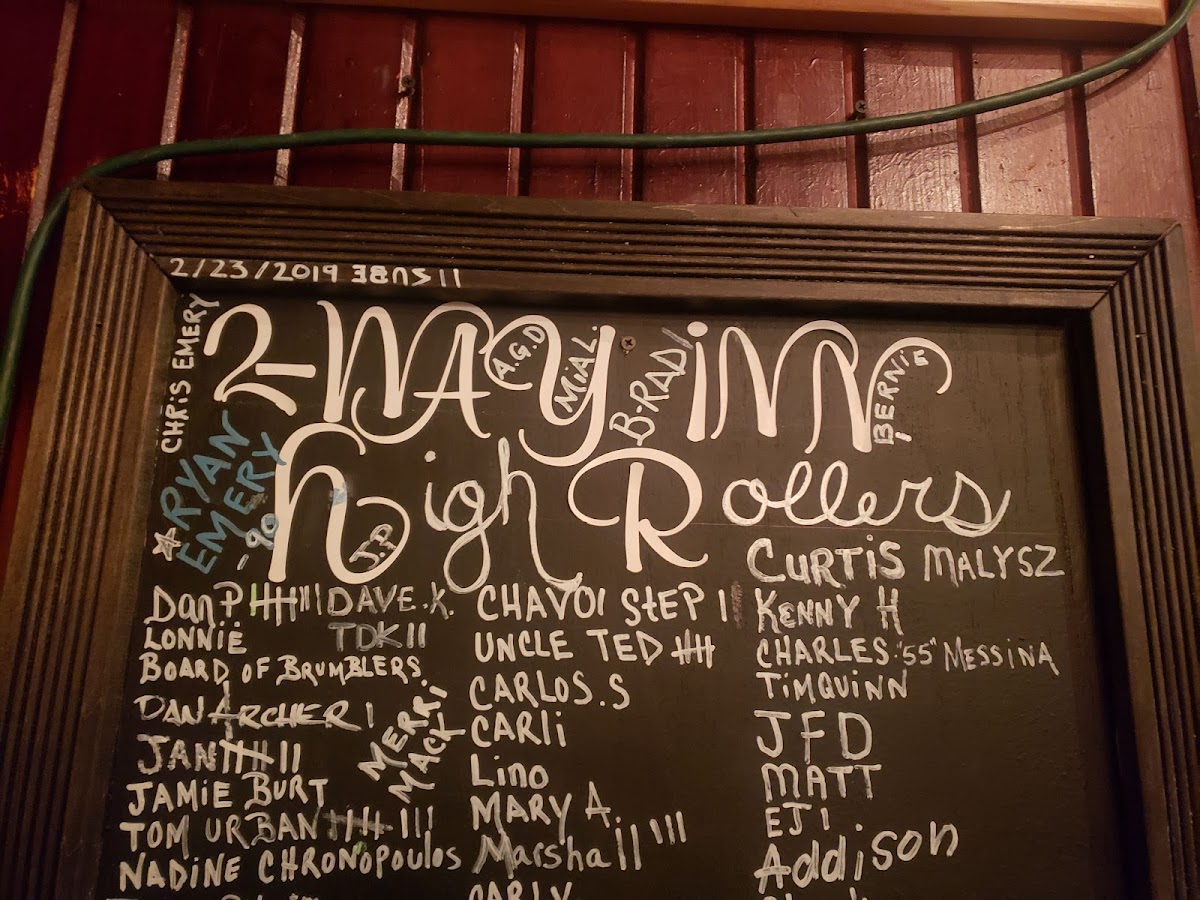 2/23/2019 ƎBUS II
CHRIS EMERY
2-WAY iNN
A.G.D
MiAL.
B-RAD
BERNiE
RYAN EMERY
-90
high Rollers
J.P
Dan P
DAVE.K.
LONNiE
TDK II
BOARD OF BRUMBLERS.
DAN ARCHER I
MERRi MACK
JAN
JAMiE BURT
TOM URBAN
NADiNE CHRONOPOULOS
CHAVO StEP
UNCLE TED
CARLOS.S
CARLi
Lino
MARY A.
Marshall
CARLY
CURTiS MALYSZ
KENNY H
CHARLES "55" MESSINA
TiM QUiNN
JFD
MATT
EJ
Addison